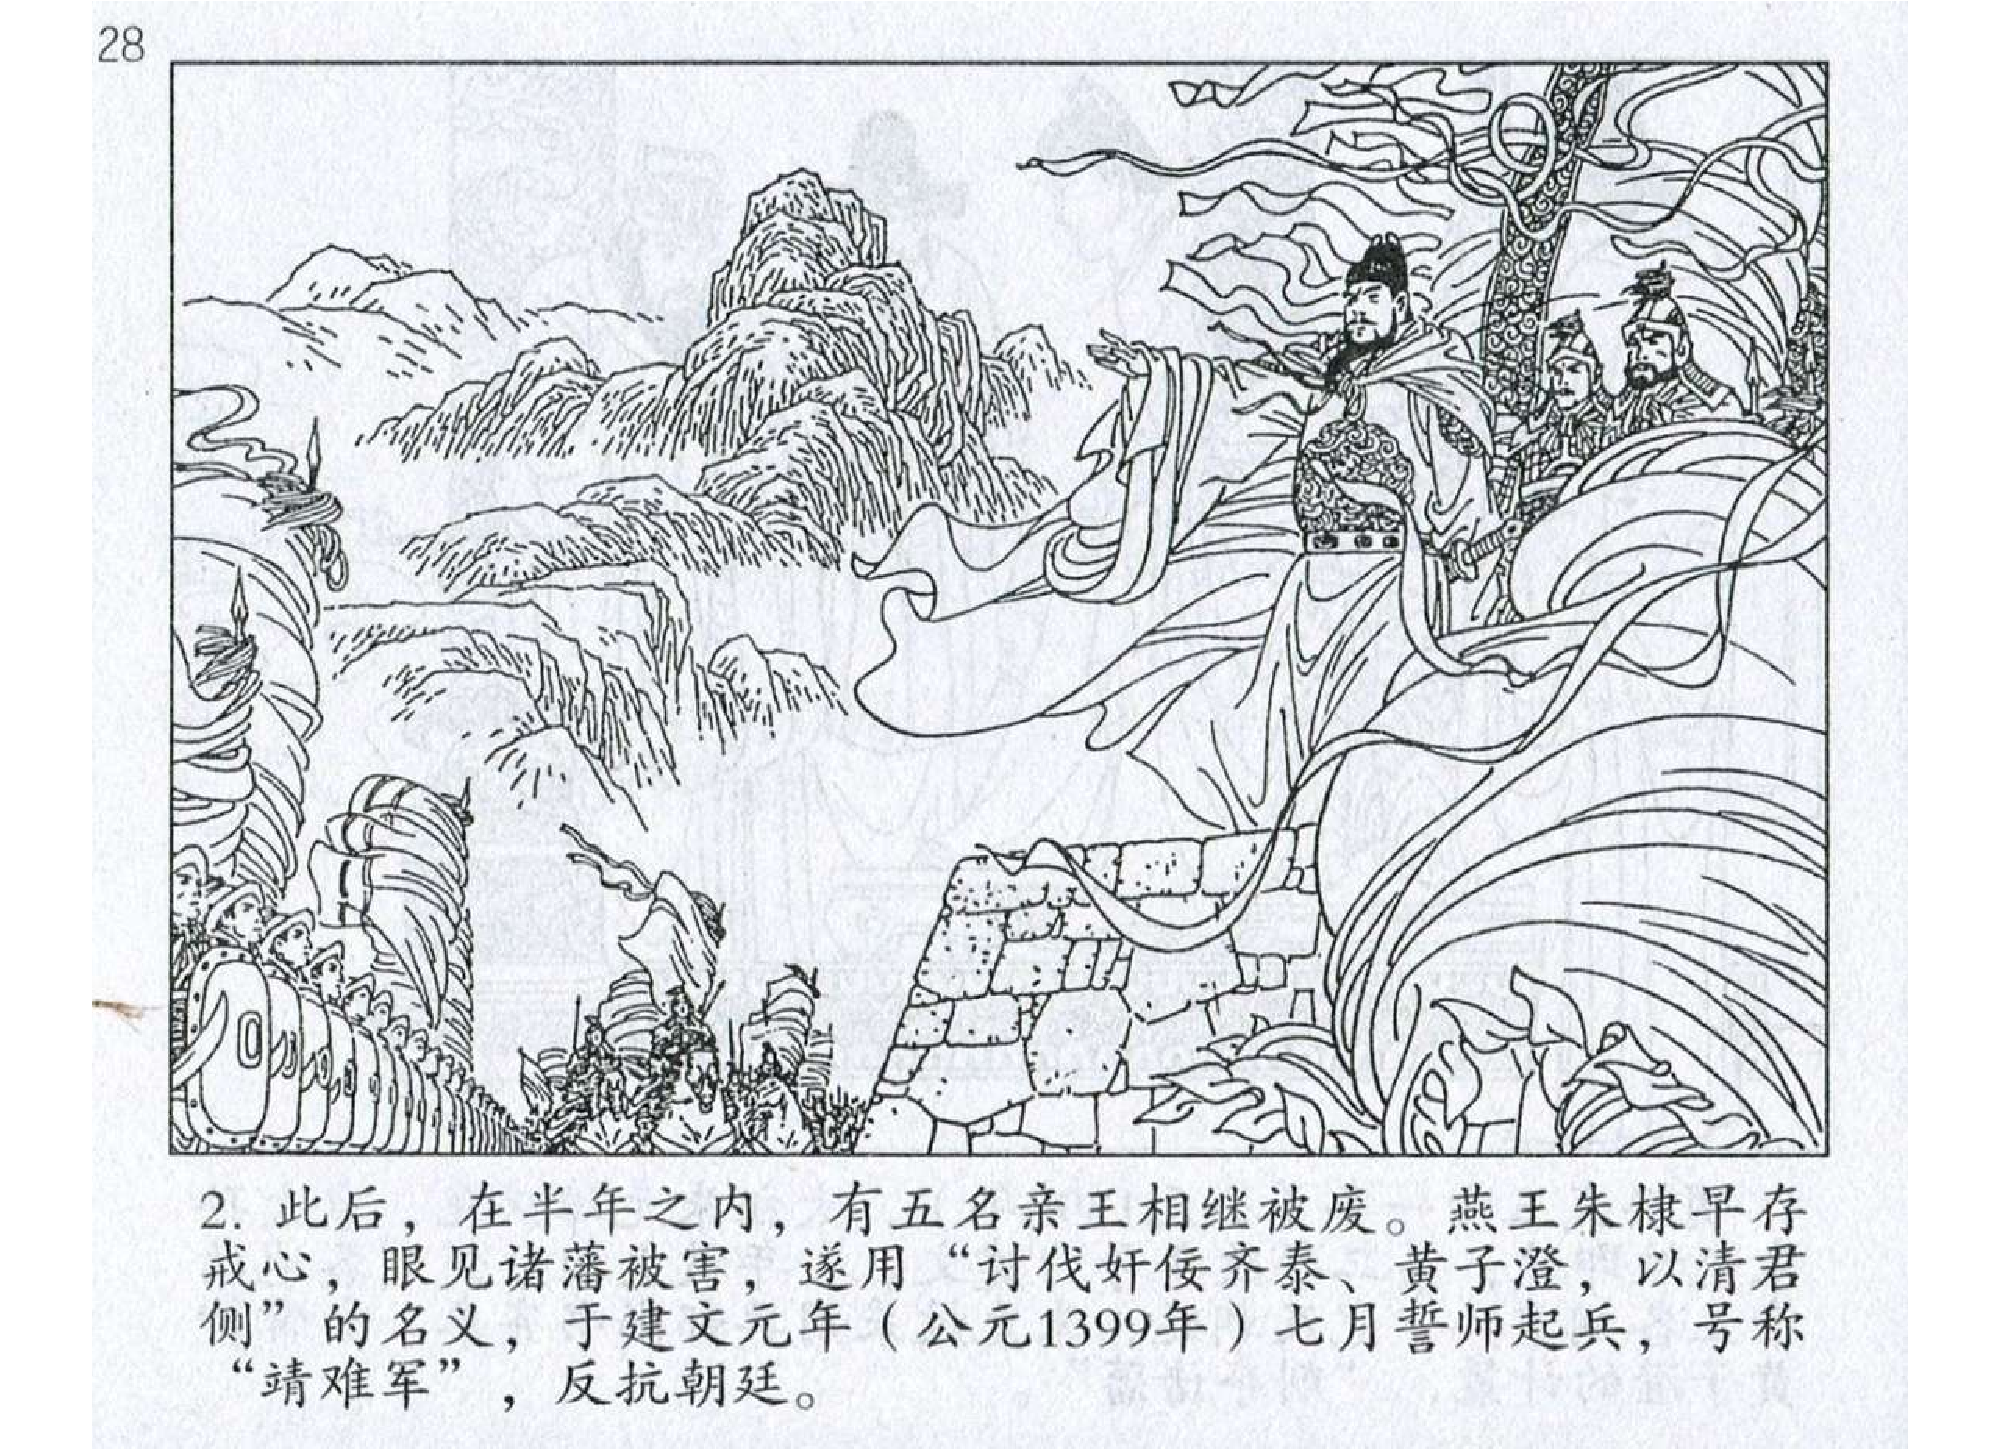 28
2. 此后，在半年之内，有五名亲王相继被废。燕王朱棣早存
戒心，眼见诸藩被害，遂用“讨伐奸佞齐泰、黄子澄，以清君
侧”的名义，于建文元年（公元1399年）七月誓师起兵，号称
“靖难军”，反抗朝廷。